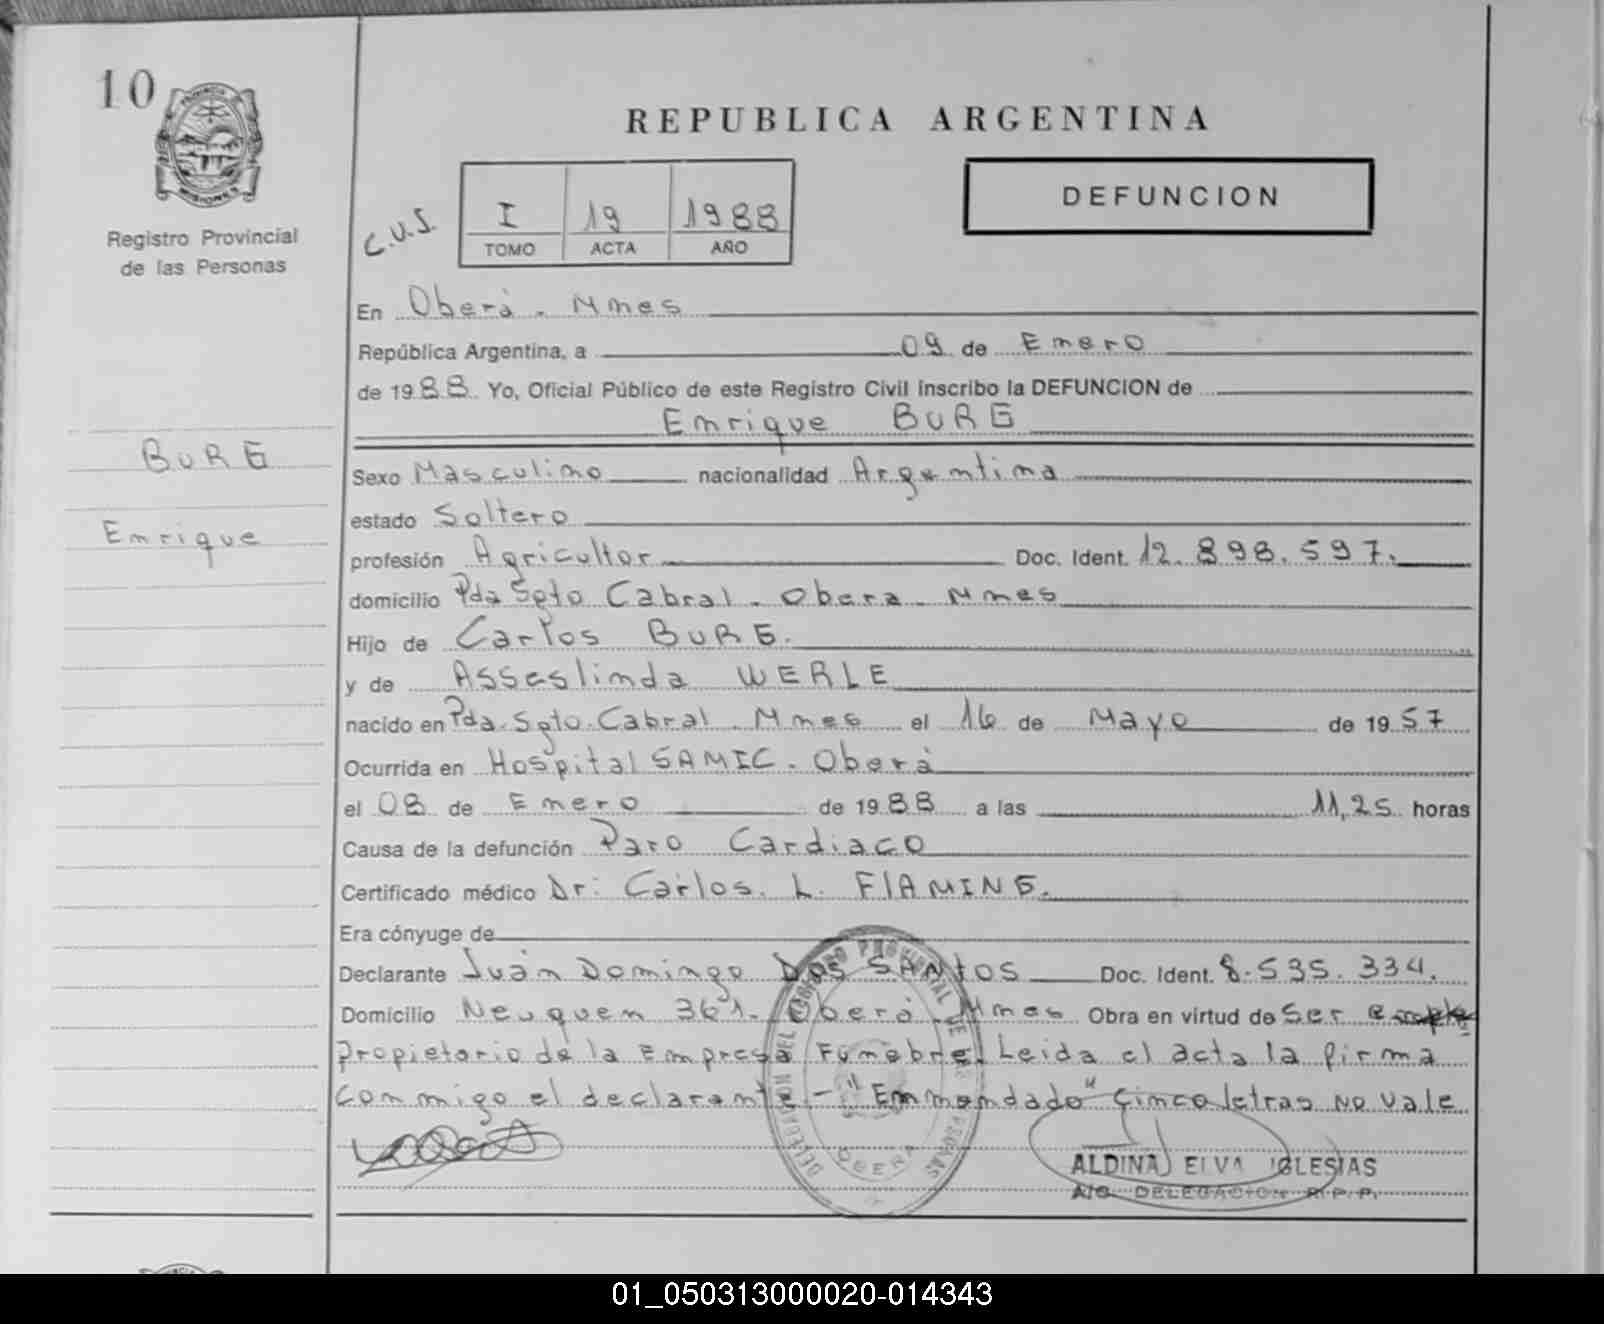 10
PROVINCIA DE
MISIONES
Registro Provincial
de las Personas
REPUBLICA ARGENTINA
DEFUNCION
C.U.S.
I 19 1988
TOMO ACTA AÑO
En Oberá - Mnes
República Argentina, a 09 de Enero
de 1988 Yo, Oficial Público de este Registro Civil inscribo la DEFUNCION de
Enrique BURG
BURG
Enrique
Sexo Masculino nacionalidad Argentina
estado Soltero
profesión Agricultor Doc. Ident. 12.898.597.
domicilio Pda Sgto Cabral - Obera - Mnes
Hijo de Carlos BURG.
y de Asseslinda WERLE
nacido en Pda. Sgto. Cabral. Mnes el 16 de Mayo de 1957
Ocurrida en Hospital SAMIC. Oberá
el 08 de Enero de 1988 a las 11,25 horas
Causa de la defunción Paro Cardiaco
Certificado médico Dr: Carlos. L. FIAMING.
Era cónyuge de
Declarante Juán Domingo Dos SANtOS Doc. Ident. 8.535.334.
Domicilio Neuquen 361. Oberá. Mnes Obra en virtud de Ser
Propietario de la Empresa Funebre. Leida el acta la firma
conmigo el declarante - "Enmendado" Cinco letras No Vale
DELEGACION DEL REGISTRO PROVINCIAL DE LAS PERSONAS
OBERA
ALDINA ELVA IGLESIAS
A/C. DELEGACION R.P.P.
01_050313000020-014343